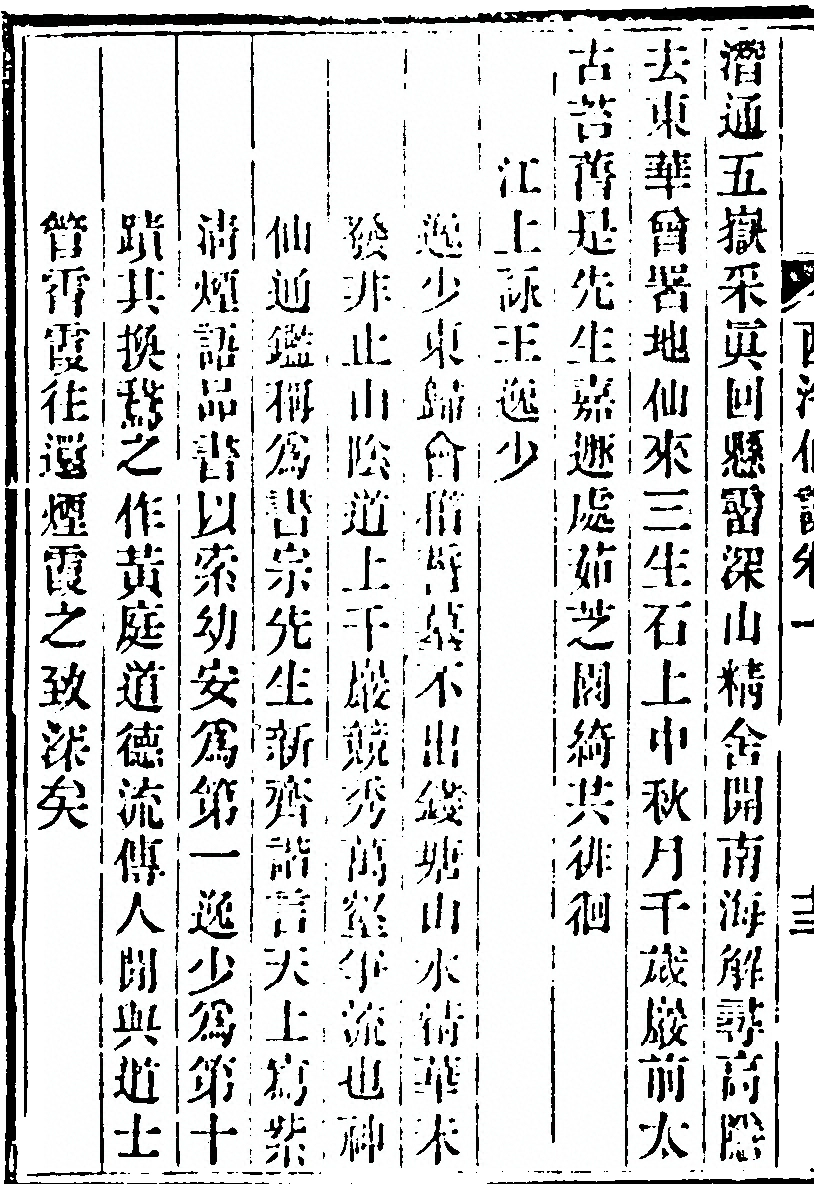 潛通五嶽采眞回懸霤深山精舍開南海解尋高隱
去東華曾署地仙來三生石上中秋月千歲巖前太
古苔舊是先生嘉遯處茹芝園綺共徘徊
江上詠王逸少
逸少東歸會稽誓墓不出錢塘山水淸華未
發非止山陰道上千巖競秀萬壑爭流也神
仙通鑑稱爲書宗先生新齊諧言天上寫紫
淸煙語品書以索幼安爲第一逸少爲第十
蹟其換鵞之作黃庭道德流傳人閒與道士
管霄霞往還煙霞之致深矣
西湖仙詠卷一
十三